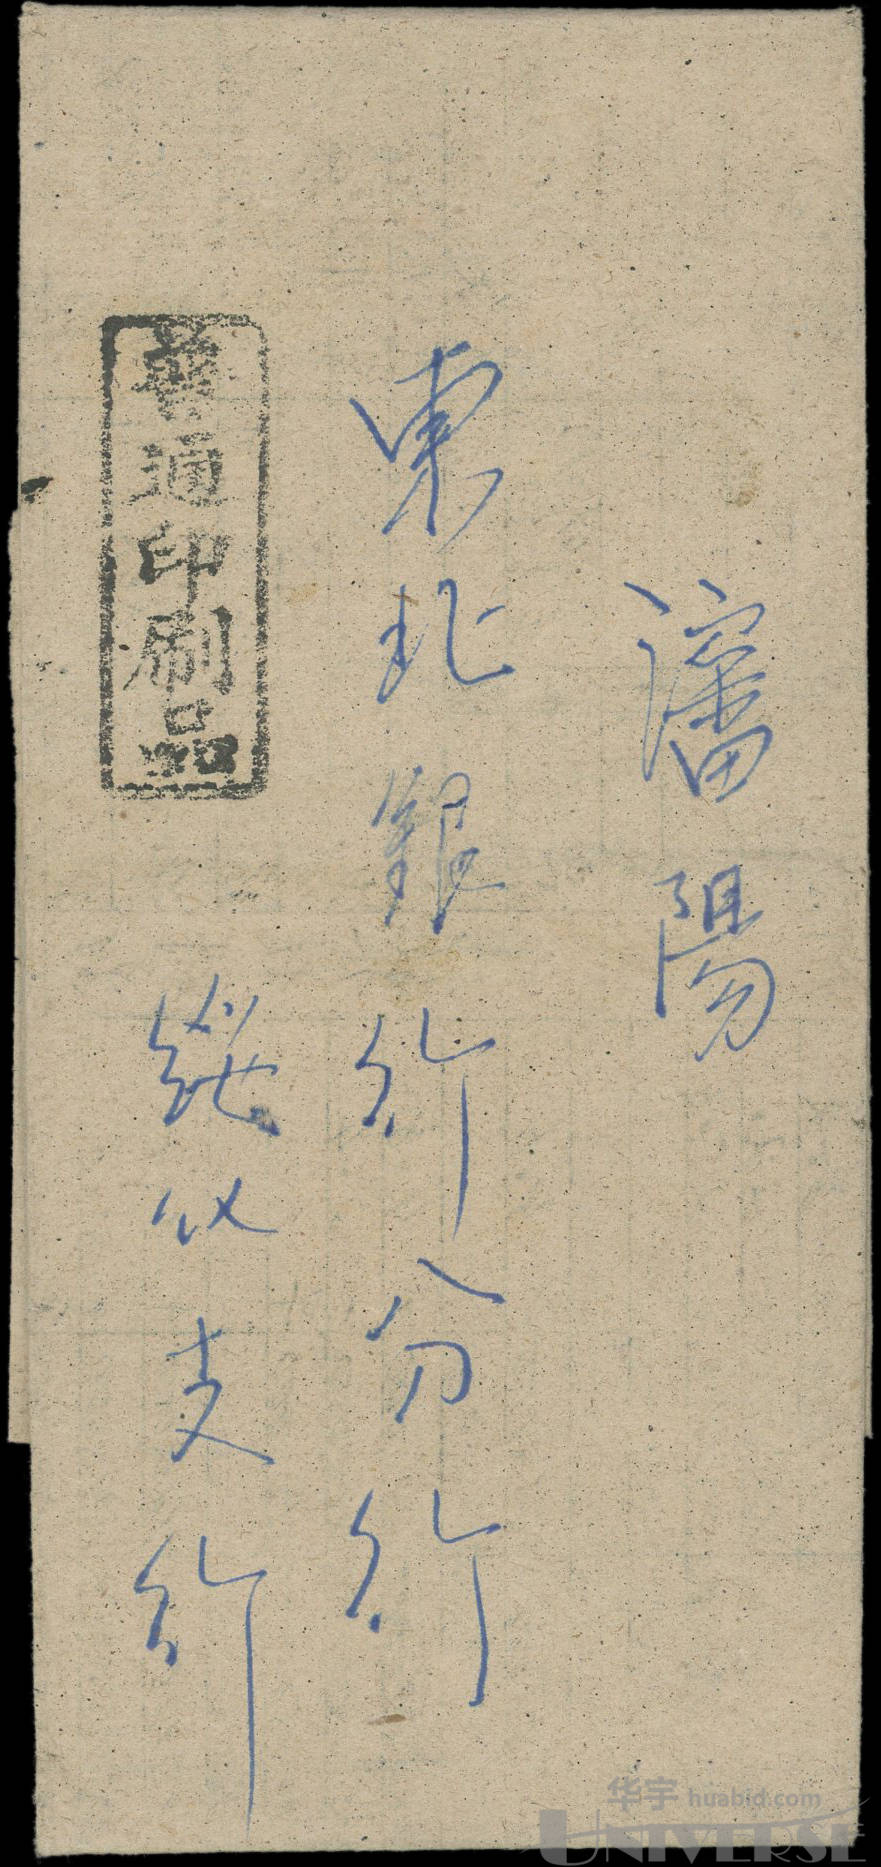 瀋陽
東北銀行分行
支行
普通印刷品
华宇 huabid.com
UNIVERSE